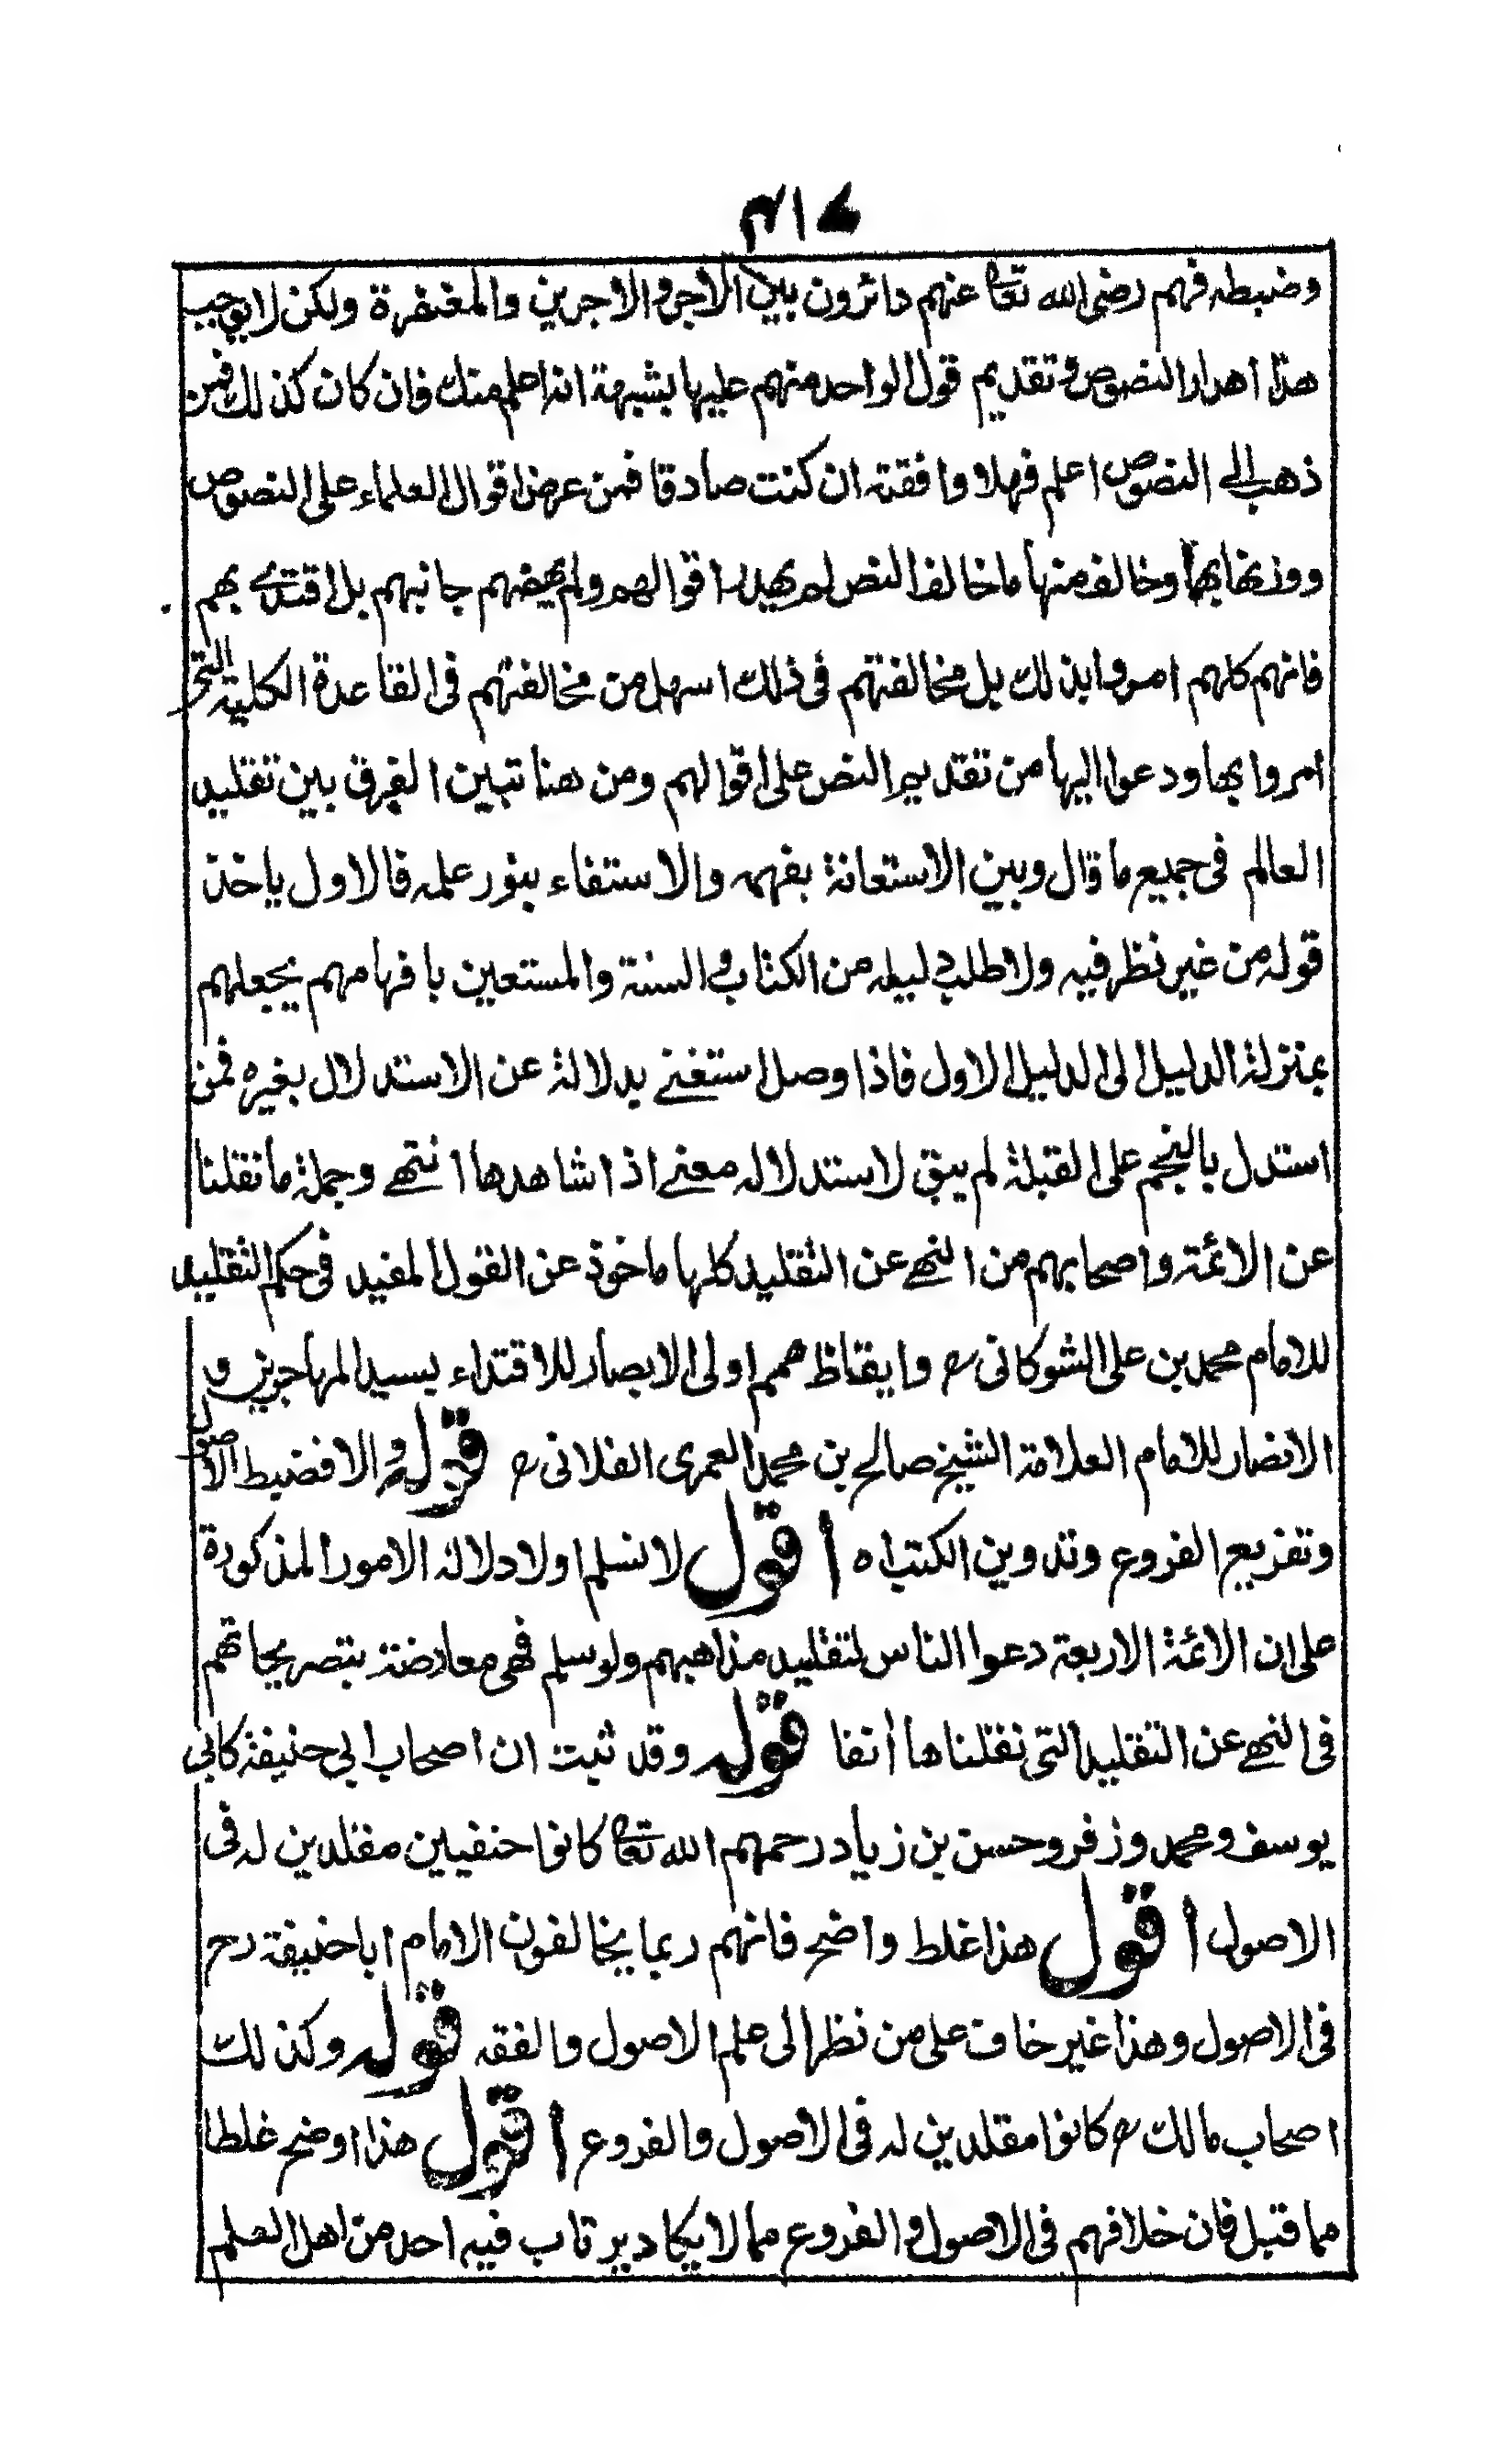 ۴۱۷
وضبطه فهم رضى الله تعا عنهم دائرون بين الاجر والاجرين والمغفرة ولكن لا يوجب
هذا اهدار النصوص وتقديم قول الواحد منهم عليها بشبهة انه اعلم منك فان كان كذلك فمن
ذهب الى النصوص اعلم فهلا وافقته ان كنت صادقا فمن عرض اقوال العلماء على النصوص
ووزنها بها وخالف منها ما خالف النص لم يهدر اقوالهم ولم يهضم جانبهم بل اقتدى بهم
فانهم كلهم امروا بذلك بل مخالفتهم فى ذلك اسهل من مخالفتهم فى القاعدة الكلية التى
امروا بها ودعوا اليها من تقديم النص على اقوالهم ومن هنا تبين الفرق بين تقليد
العالم فى جميع ما قال وبين الاستعانة بفهمه والاستضاء بنور علمه فالاول ياخذ
قوله من غير نظر فيه ولا طلب دليله من الكتاب والسنة والمستعين بافهامهم يجعلهم
بمنزلة الدليل الى الدليل الاول فاذا وصل استغنى بدلالة عن الاستدلال بغيره فمن
استدل بالنجم على القبلة لم يبق لاستدلاله معنى اذا شاهدها انتهى وجملة ما نقلنا
عن الائمة واصحابهم من النهى عن التقليد كلها ماخوذ عن القول المفيد فى حكم التقليد
للامام محمد بن على الشوكانى رح وايقاظ همم اولى الابصار للاقتداء بسيد المهاجرين و
الانصار للامام العلامة الشيخ صالح بن محمد العمرى الفلانى رح قوله والا فضبط الاصول
وتفريع الفروع وتدوين الكتب اه اقول لا نسلم اولا دلالة الامور المذكورة
على ان الائمة الاربعة دعوا الناس لتقليد مذاهبهم ولو سلم فهى معارضة بتصريحاتهم
فى النهى عن التقليد التى نقلناها أنفا قوله وقد ثبت ان اصحاب ابي حنيفة كابي
يوسف ومحمد وزفر وحسن بن زياد رحمهم الله تعا كانوا حنفيين مقلدين له فى
الاصول اقول هذا غلط واضح فانهم ربما يخالفون الامام ابا حنيفة رح
فى الاصول وهذا غير خاف على من نظر الى علم الاصول والفقه قوله وكذلك
اصحاب مالك رح كانوا مقلدين له فى الاصول والفروع اقول هذا اوضح غلطا
مما قبل فان خلافهم فى الاصول والفروع مما لا يكاد يرتاب فيه احد من اهل العلم